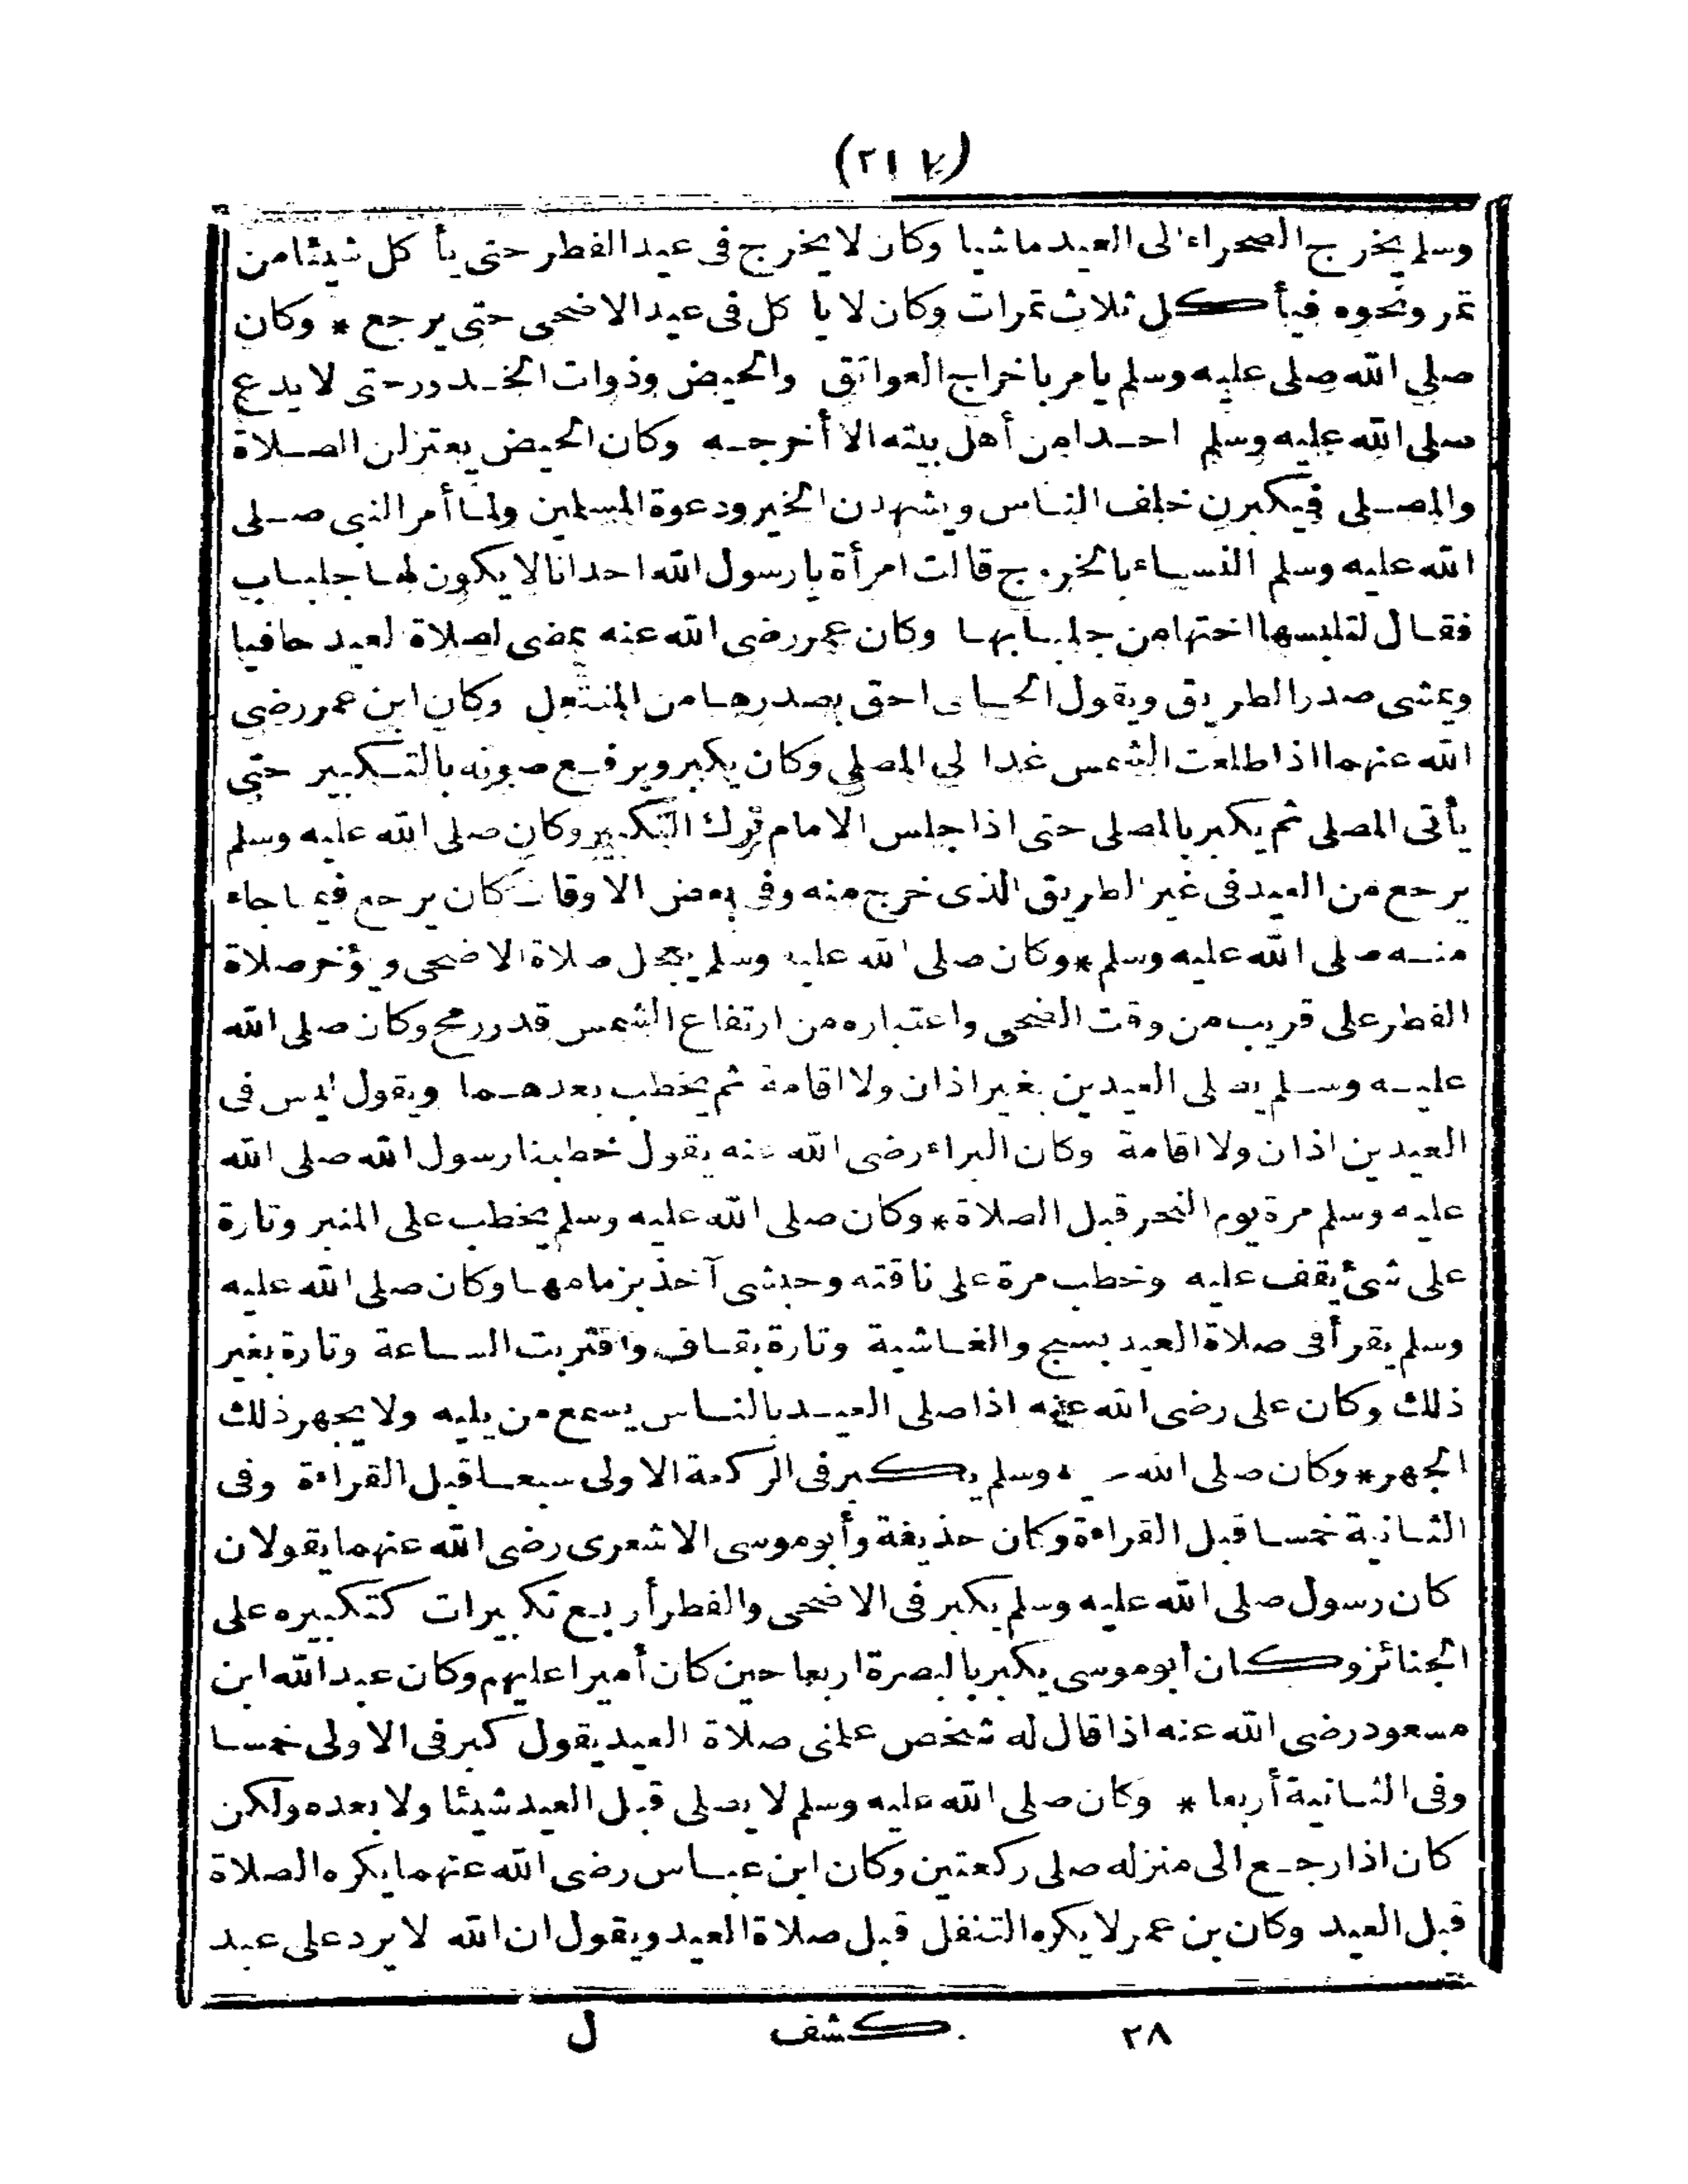 (٢١٧)
وسلم يخرج الصحراء الى العيد ماشيا وكان لا يخرج فى عيد الفطر حتى يأ كل شيئا من
تمر ونحوه فيأكل ثلاث تمرات وكان لا يا كل فى عيد الاضحى حتى يرجع * وكان
صلى الله صلى عليه وسلم يامر باخراج العواتق والحيض وذوات الخدور حتى لا يدع
صلى الله عليه وسلم احدا من أهل بيته الا أخرجه وكان الحيض يعتزلن الصلاة
والمصلى فيكبرن خلف الناس ويشهدن الخير ودعوة المسلمين ولما أمر النبى صلى
الله عليه وسلم النساء بالخروج قالت امرأة يا رسول الله احدانا لا يكون لها جلباب
فقال لتلبسها اختها من جلبابها وكان عمر رضى الله عنه يمضى لصلاة لعيد حافيا
ويمشى صدر الطريق ويقول الحافى احق بصدرها من المنتعل وكان ابن عمر رضى
الله عنهما اذا طلعت الشمس غدا لى المصلى وكان يكبر ويرفع صوته بالتكبير حتى
يأتى المصلى ثم يكبر بالمصلى حتى اذا جلس الامام ترك التكبير وكان صلى الله عليه وسلم
يرجع من العيد فى غير الطريق الذى خرج منه وفى بعض الاوقات كان يرجع فيما جاء
منه صلى الله عليه وسلم * وكان صلى الله عليه وسلم يعجل صلاة الاضحى ويؤخر صلاة
الفطر على قريب من وقت الضحى واعتباره من ارتفاع الشمس قدر رمح وكان صلى الله
عليه وسلم يصلى العيدين بغير اذان ولا اقامة ثم يخطب بعدهما ويقول ليس فى
العيدين اذان ولا اقامة وكان البراء رضى الله عنه يقول خطبنا رسول الله صلى الله
عليه وسلم مرة يوم النحر قبل الصلاة * وكان صلى الله عليه وسلم يخطب على المنبر وتارة
على شئ يقف عليه وخطب مرة على ناقته وحبشى آخذ بزمامها وكان صلى الله عليه
وسلم يقرأ فى صلاة العيد بسبح والغاشية وتارة بقاف واقتربت الساعة وتارة بغير
ذلك وكان على رضى الله عنه اذا صلى العيد بالناس يسمع من يليه ولا يجهر ذلك
الجهر * وكان صلى الله وسلم يكبر فى الركعة الاولى سبعا قبل القراءة وفى
الثانية خمسا قبل القراءة وكان حذيفة وأبو موسى الاشعرى رضى الله عنهما يقولان
كان رسول صلى الله عليه وسلم يكبر فى الاضحى والفطر أربع تكبيرات كتكبيره على
الجنائز وكان أبو موسى يكبر بالبصرة اربعا حين كان أميرا عليهم وكان عبد الله ابن
مسعود رضى الله عنه اذا قال له شخص علمنى صلاة العيد يقول كبر فى الاولى خمسا
وفى الثانية أربعا * وكان صلى الله عليه وسلم لا يصلى قبل العيد شيئا ولا بعده ولكن
كان اذا رجع الى منزله صلى ركعتين وكان ابن عباس رضى الله عنهما يكره الصلاة
قبل العيد وكان بن عمر لا يكره التنفل قبل صلاة العيد ويقول ان الله لا يرد على عبد
٢٨ كشف ل